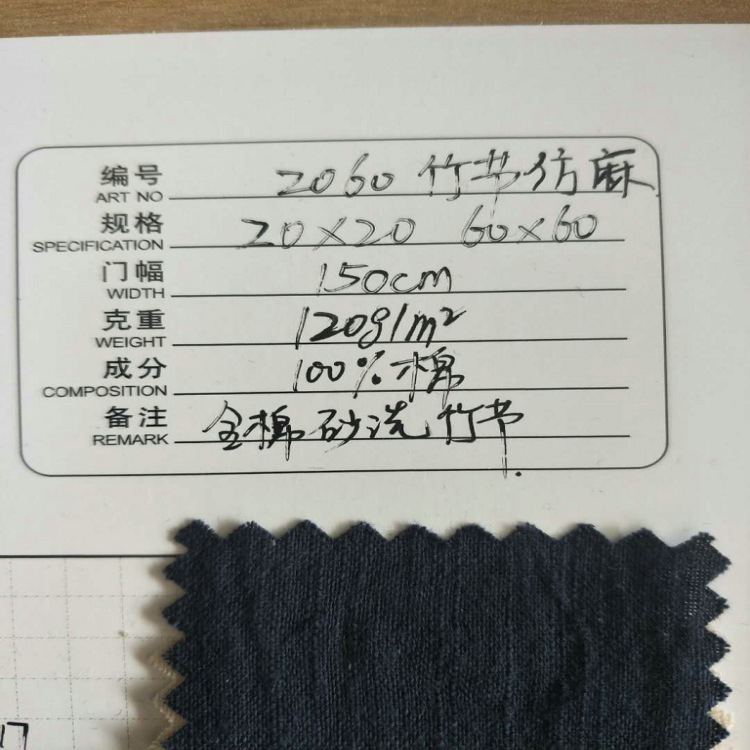 编号 2060 竹节仿麻
ART NO
规格 20×20 60×60
SPECIFICATION
门幅 150cm
WIDTH
克重 120g/m²
WEIGHT
成分 100%棉
COMPOSITION
备注 全棉砂洗竹节
REMARK
17